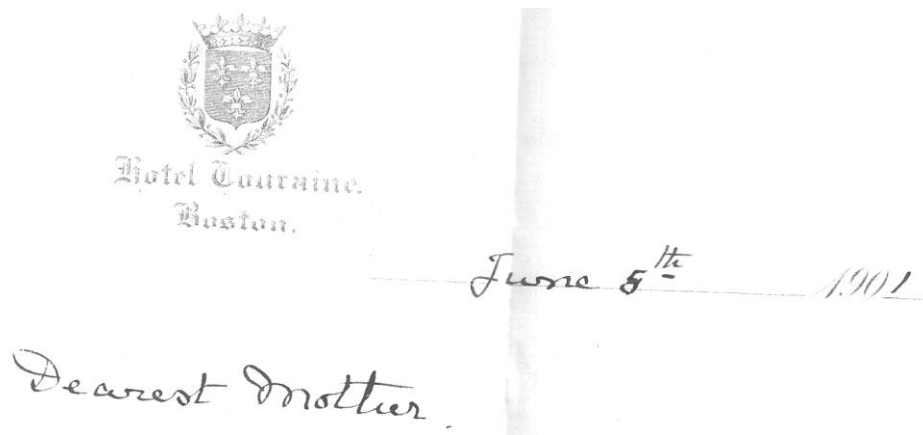 Hotel Touraine.
Boston.
June 5th 1901
Dearest Mother.